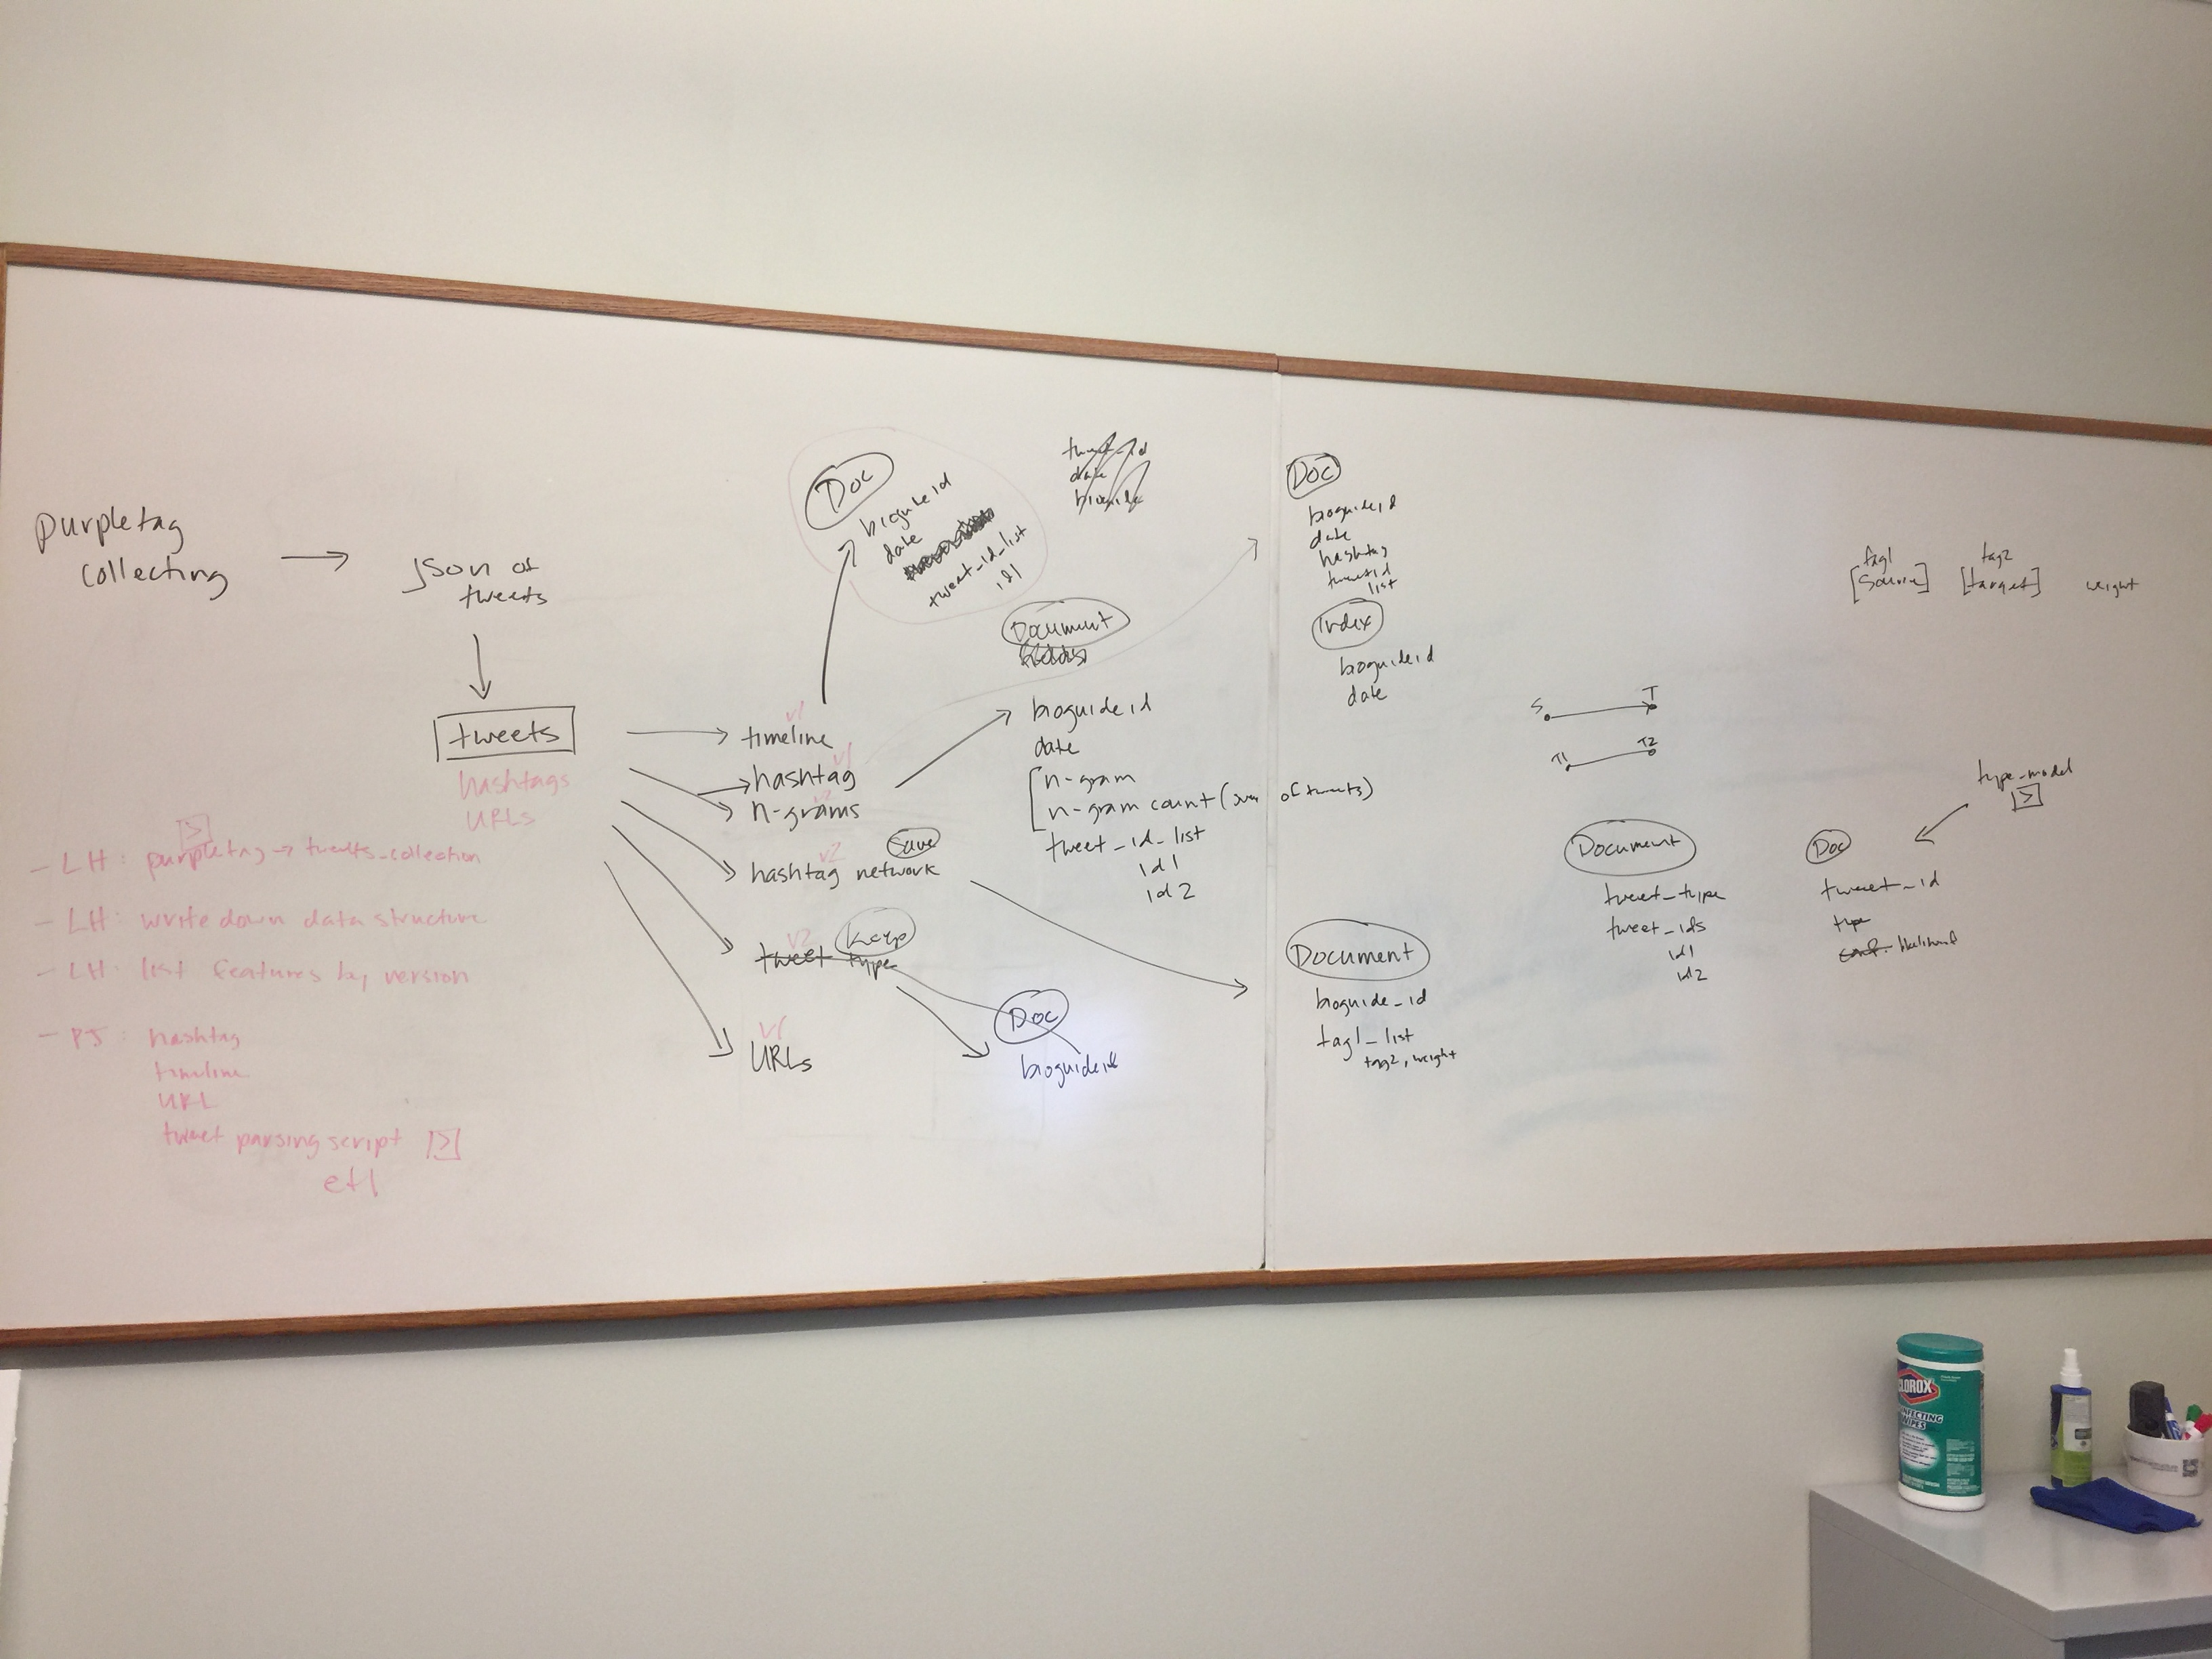 purpletag
collecting
json of
tweets
tweets
hashtags
URLs
- LH: purpletag → tweets_collection
- LH: write down data structure
- LH: list features by version
- PJ: hashtag
timeline
URL
tweet parsing script [>]
etl
v1
timeline
v1
hashtag
v2
n-grams
Save
v2
hashtag network
Keep
v2
tweet type
v1
URLs
Doc
bioguide id
date
tweet_id_list
id1
tweet_id
date
bioguide
Document
bioguide id
date
n-gram
n-gram count (sum of tweets)
tweet_id_list
id1
id2
Doc
bioguide id
Doc
bioguide id
date
hashtag
tweetid
list
Index
bioguide id
date
Document
bioguide_id
tag1_list
tag2, weight
tag1 tag2
[source] [target] weight
S T
T1 T2
Document
tweet_type
tweet_ids
id1
id2
type_model
[>]
Doc
tweet_id
type
conf. likelihood
CLOROX
DISINFECTING
WIPES